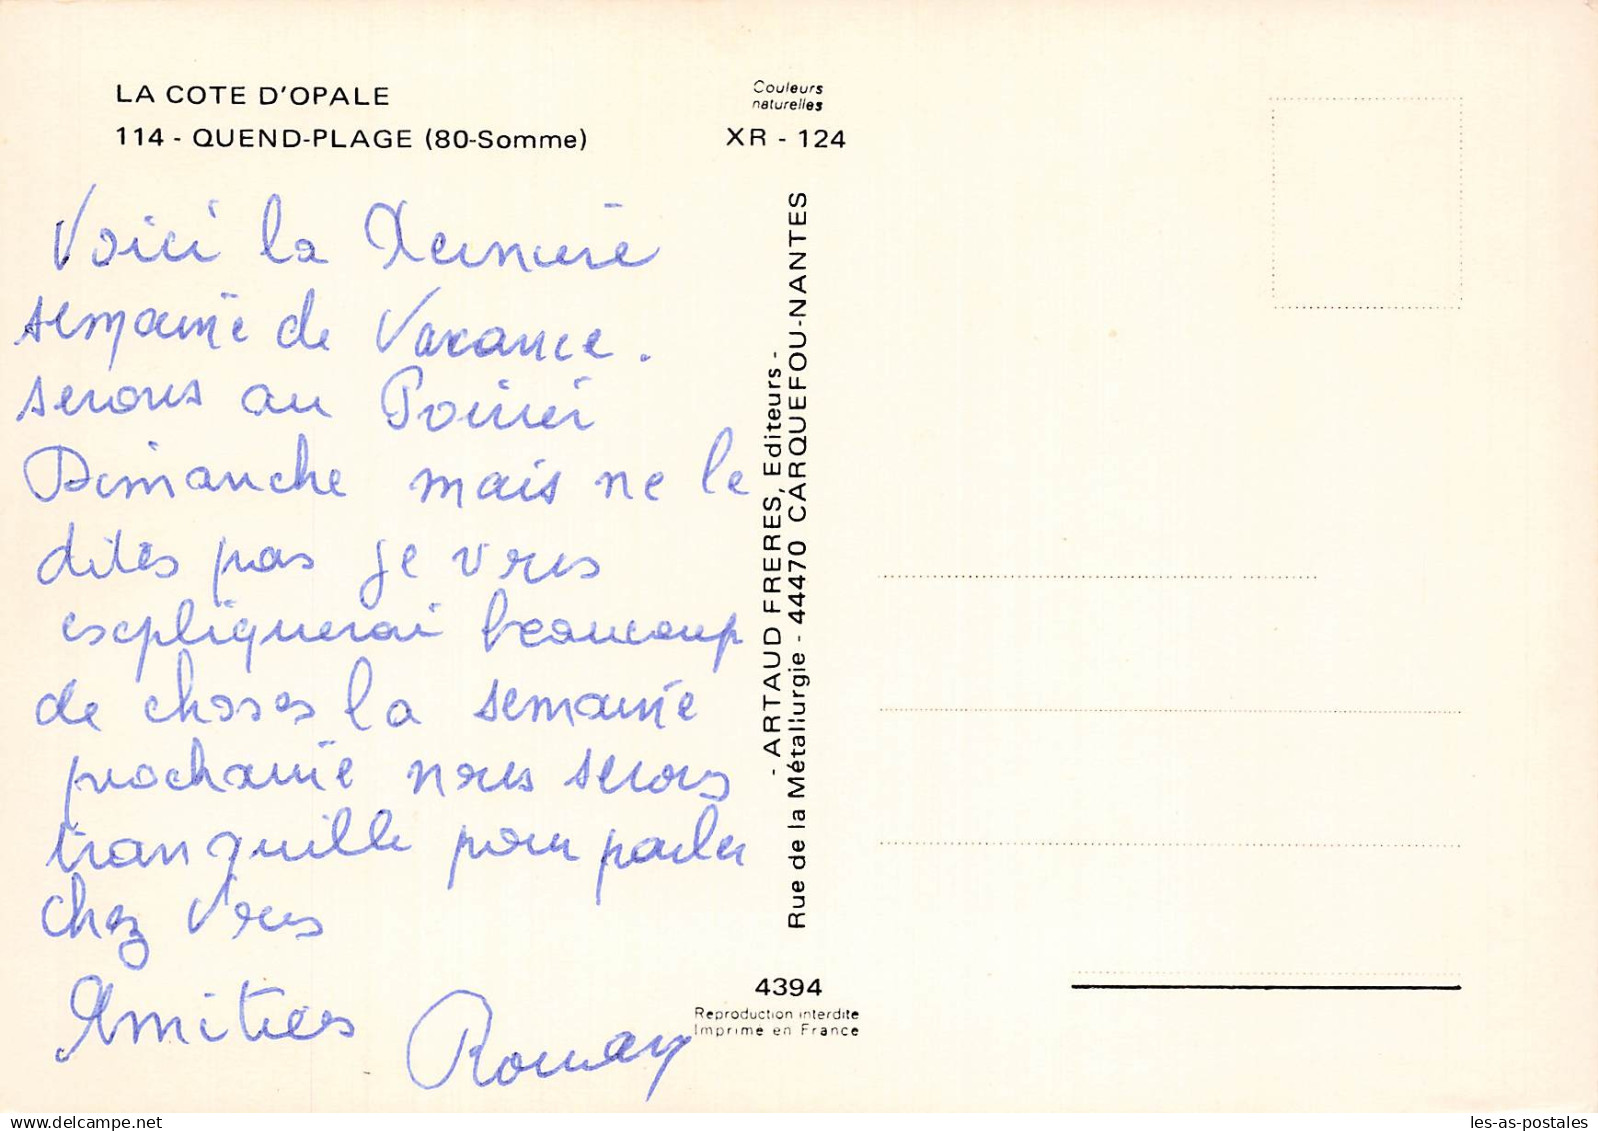 LA COTE D'OPALE
114 - QUEND-PLAGE (80-Somme)
Couleurs
naturelles
XR - 124
Voici la Dernière
semaine de Vacance.
serons au Poirier
Dimanche mais ne le
dites pas je vous
expliquerai beaucoup
de choses la semaine
prochaine nous serons
tranquille pour parler
chez vous
Amitiées
- ARTAUD FRERES, Editeurs -
Rue de la Métallurgie - 44470 CARQUEFOU-NANTES
4394
Reproduction interdite
Imprimé en France
les-as-postales